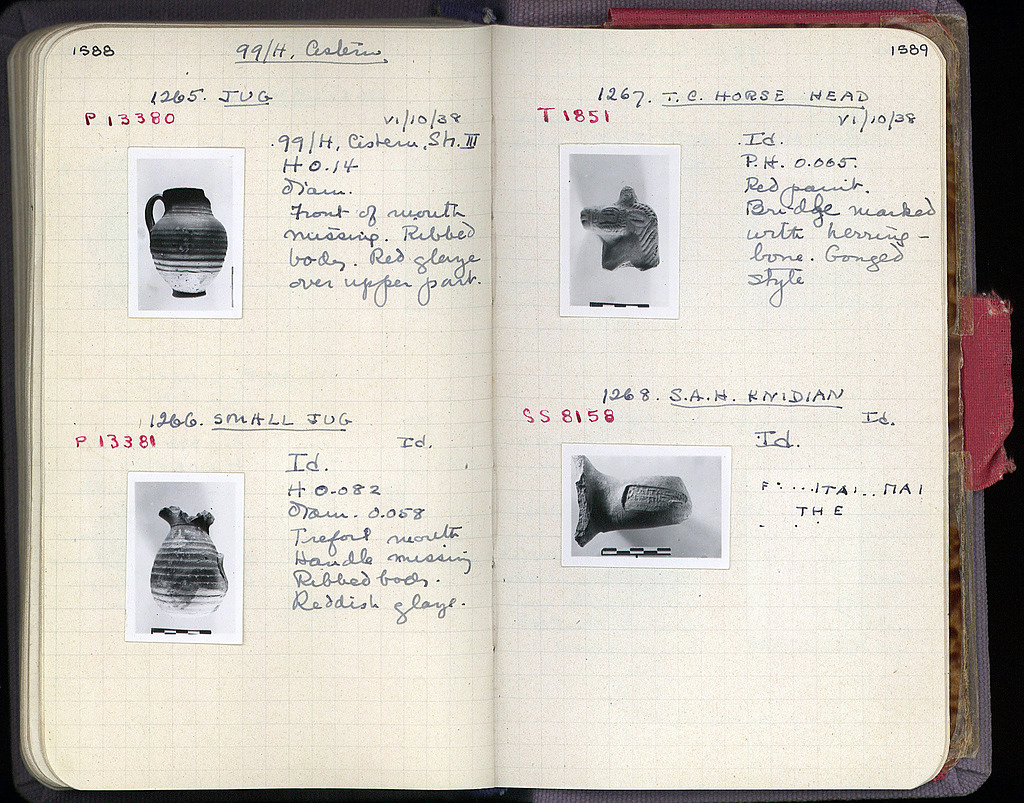 1588
99/H, Cistern,
1265. JUG
P 13380
VI/10/38
99/H, Cistern, St. III
H 0.14
Diam.
Front of mouth
missing. Ribbed
body. Red glaze
over upper part.
1266. SMALL JUG
P 13381
Id.
Id.
H 0.082
Diam. 0.058
Trefoil mouth
Handle missing
Ribbed body.
Reddish glaze.
1589
1267. T.C. HORSE HEAD
T 1851
VI/10/38
Id.
P.H. 0.065.
Red paint.
Bridge marked
with herring-
bone. Gonged
style
1268. S.A.H. KNIDIAN
SS 8158
Id.
Id.
F:...ITAI..ΠAI
THE